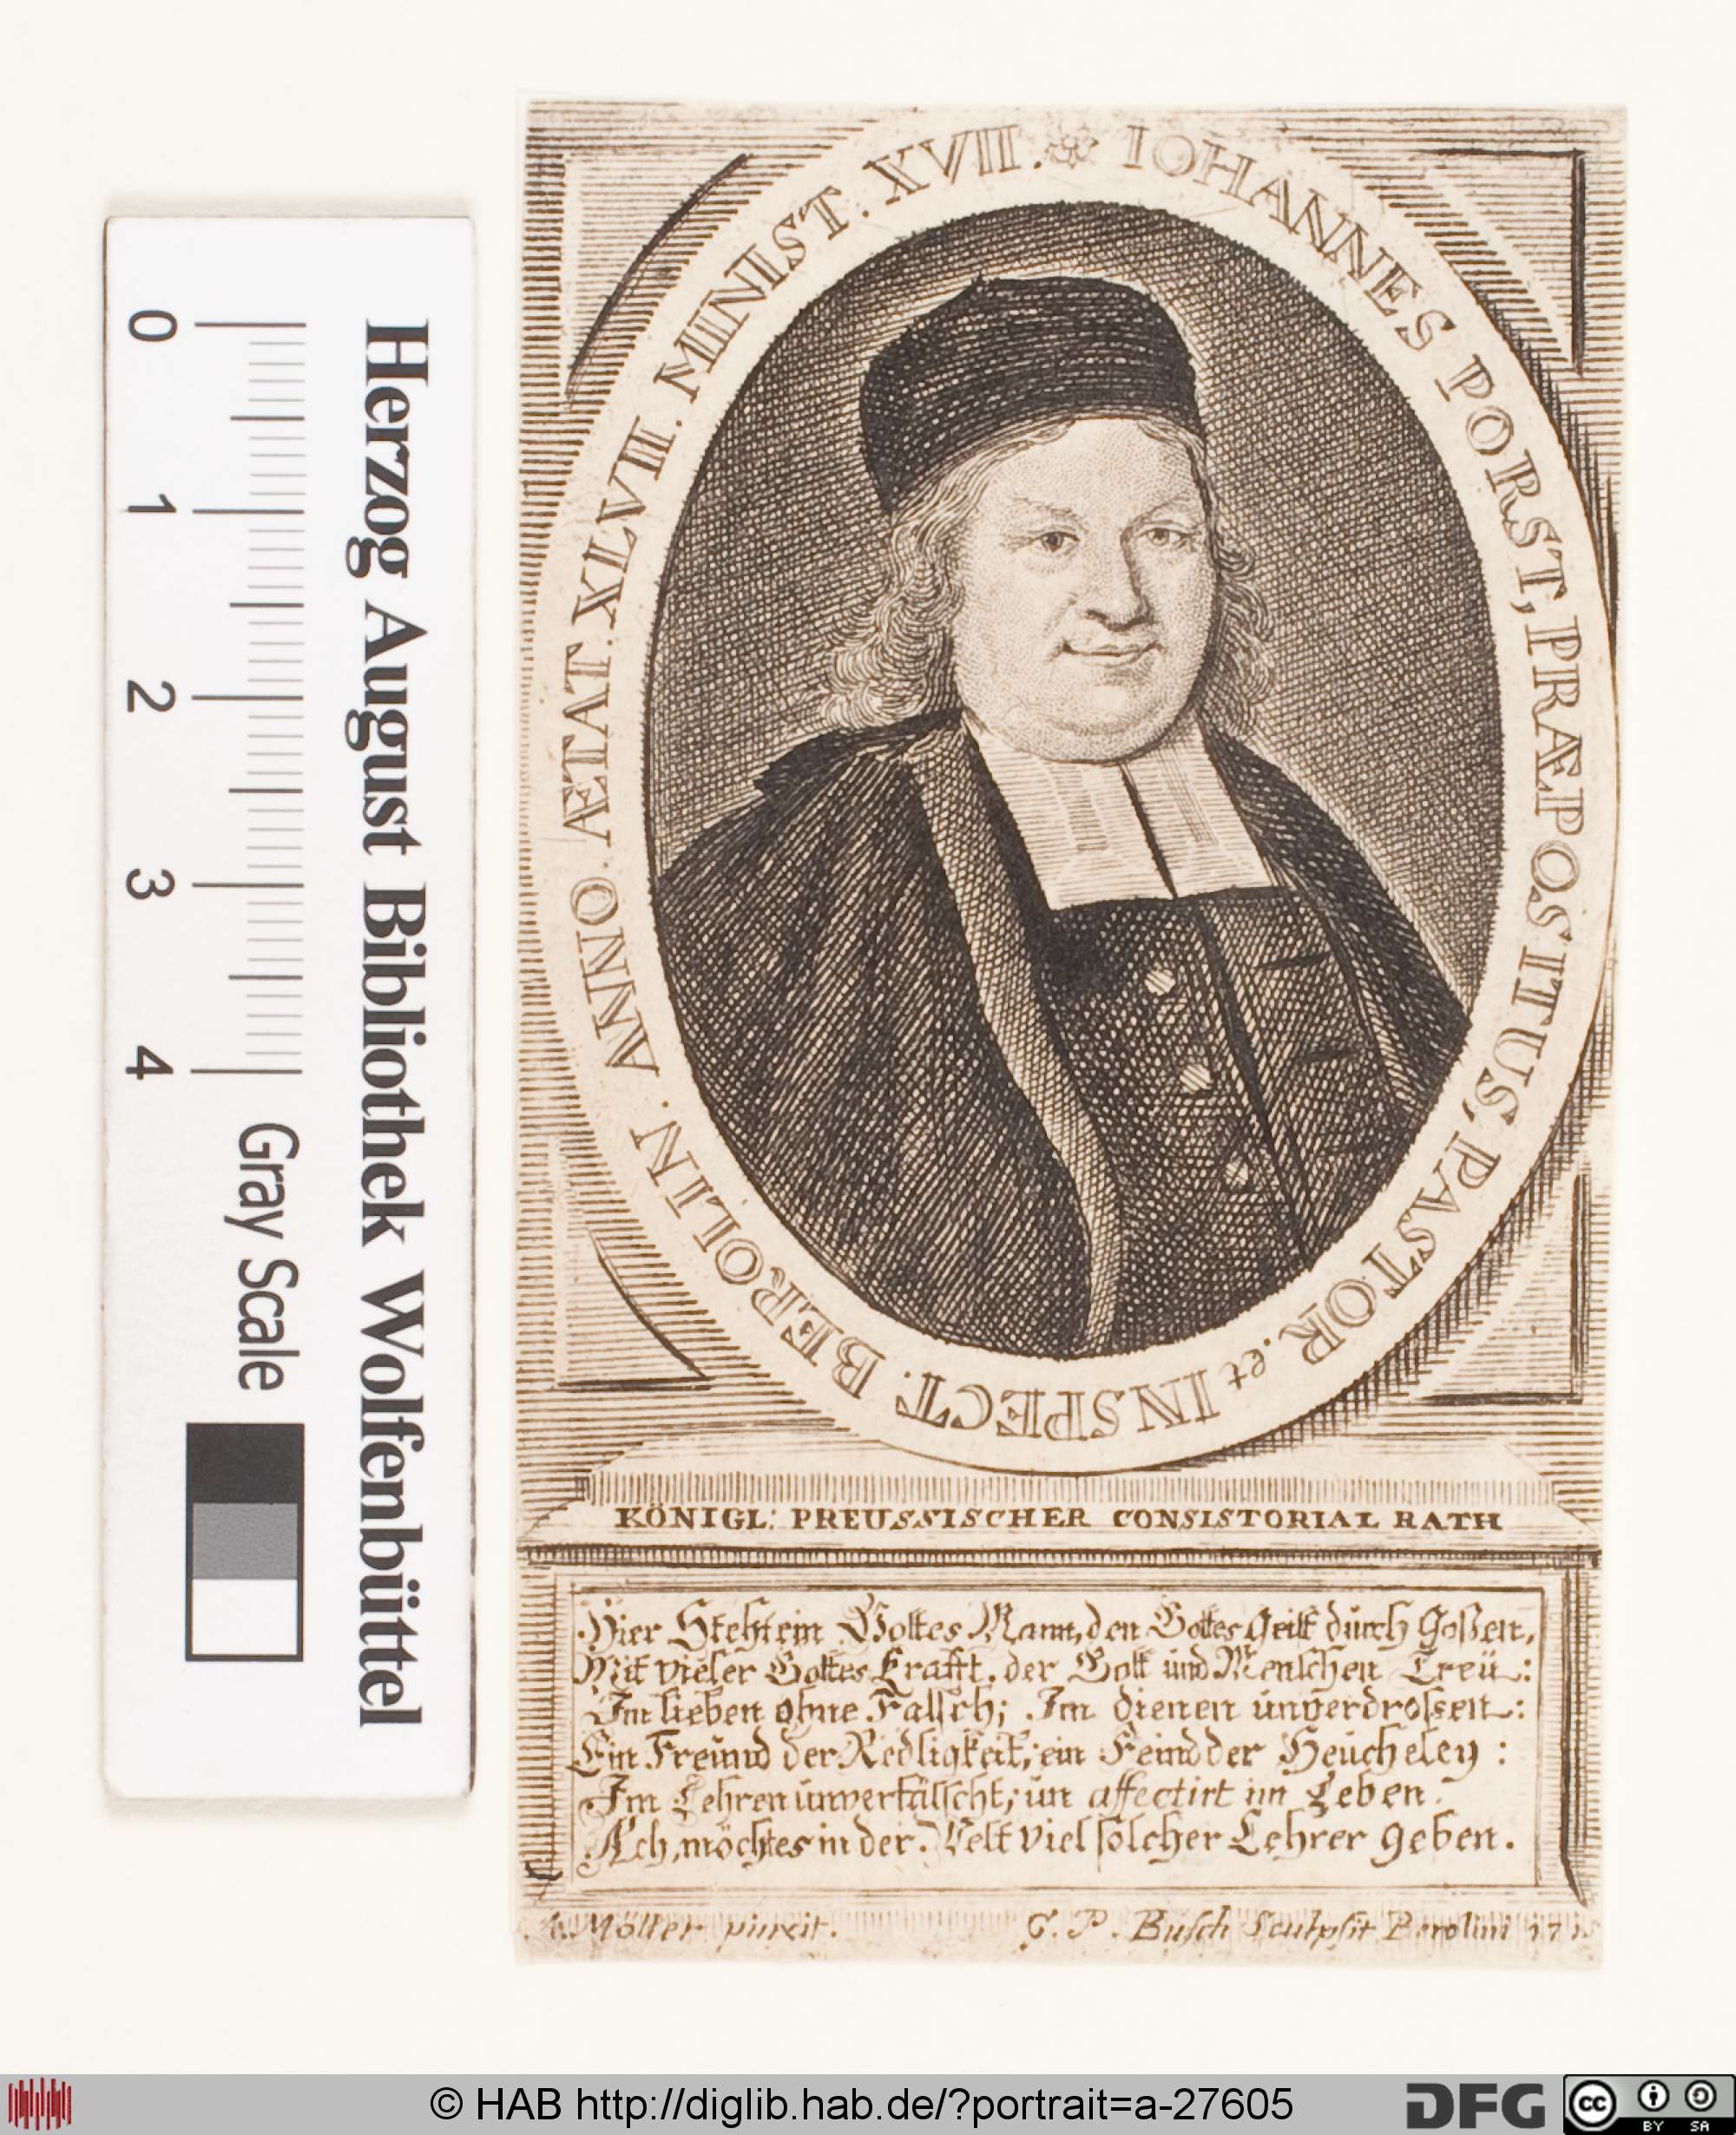 IOHANNES PORST, PRÆPOSITUS, PASTOR. et INSPECT. BEROLIN. ANNO. ÆTAT. XLVII. MINIST. XVII.
KÖNIGL: PREUSSISCHER CONSISTORIAL RATH
Hier Steht ein Gottes Mann, den Gottes Geist durch Goßen,
Mit vieler Gottes Krafft. der Gott und Menschen Treü:
Im lieben ohne Falsch; Im dienen unverdroßen:
Ein Freund der Redligkeit; ein Feind der Heücheley:
Im Lehren unverfälscht; un affectirt im Leben.
Ach, möchtes in der Welt viel solcher Lehrer geben.
Möller pinxit.
G. P. Busch Sculpsit Berolini
Herzog August Bibliothek Wolfenbüttel
0 1 2 3 4 Gray Scale
© HAB http://diglib.hab.de/?portrait=a-27605
DFG
cc BY SA